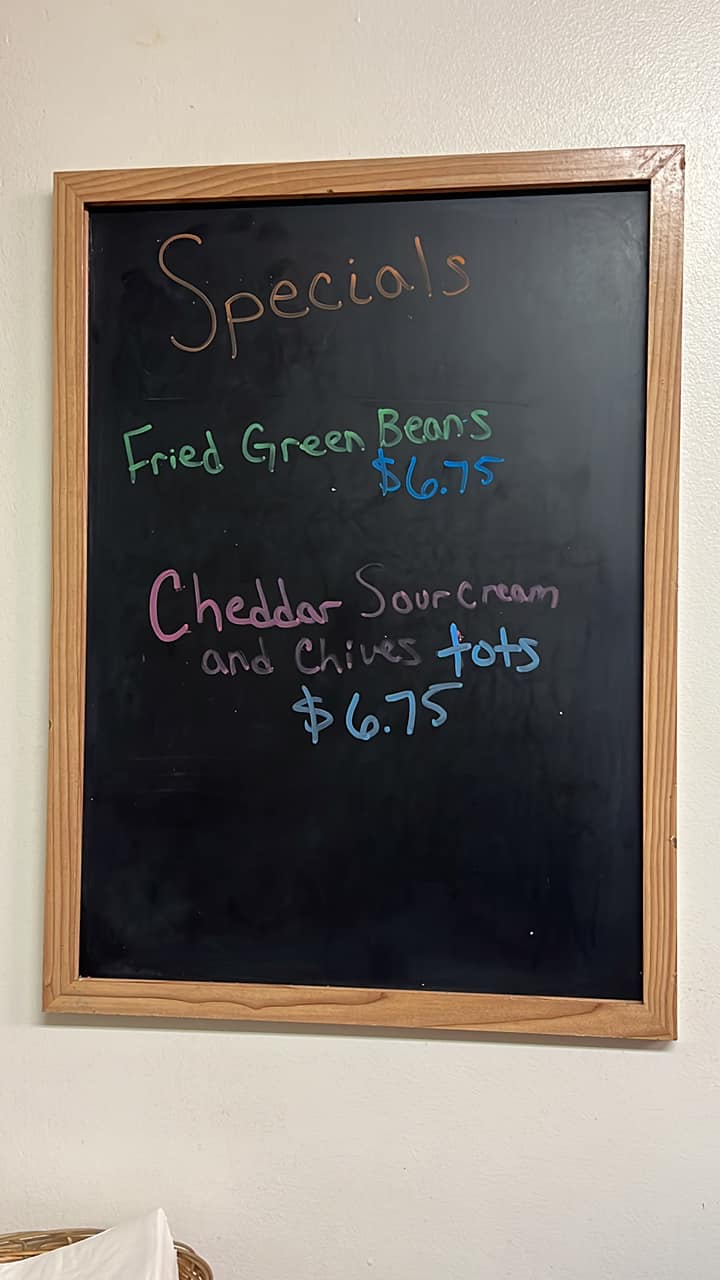 Specials
Fried Green Beans
$6.75
Cheddar Sour cream
and Chives tots
$6.75